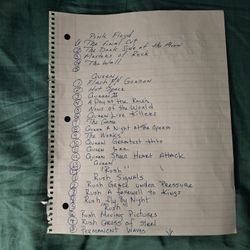 Pink Floyd
The Final Cut
The Dark Side of the Moon
Masters of Rock
The Wall
Queen
Flash Gordon
Hot Space
Queen II
A Day at the Races
News of the World
Queen Live Killers
The Game
Queen A Night at the Opera
The Works
Queen Greatest Hits
Queen Jazz
Queen Sheer Heart Attack
Queen
"Rush"
Rush Signals
Rush Grace under Pressure
Rush A Farewell to Kings
Rush Fly By Night
"Rush"
Rush Moving Pictures
Rush Caress of Steel
Permanent Waves